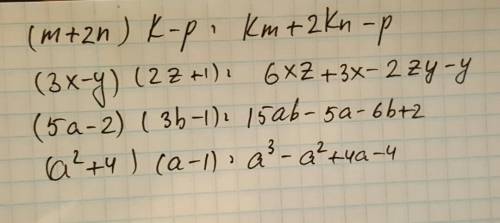 (m+2n) K-p = Km+2Kn-p
(3x-y) (2z+1) = 6xz+3x-2zy-y
(5a-2) (3b-1) = 15ab-5a-6b+2
(a²+4) (a-1) = a³-a²+4a-4